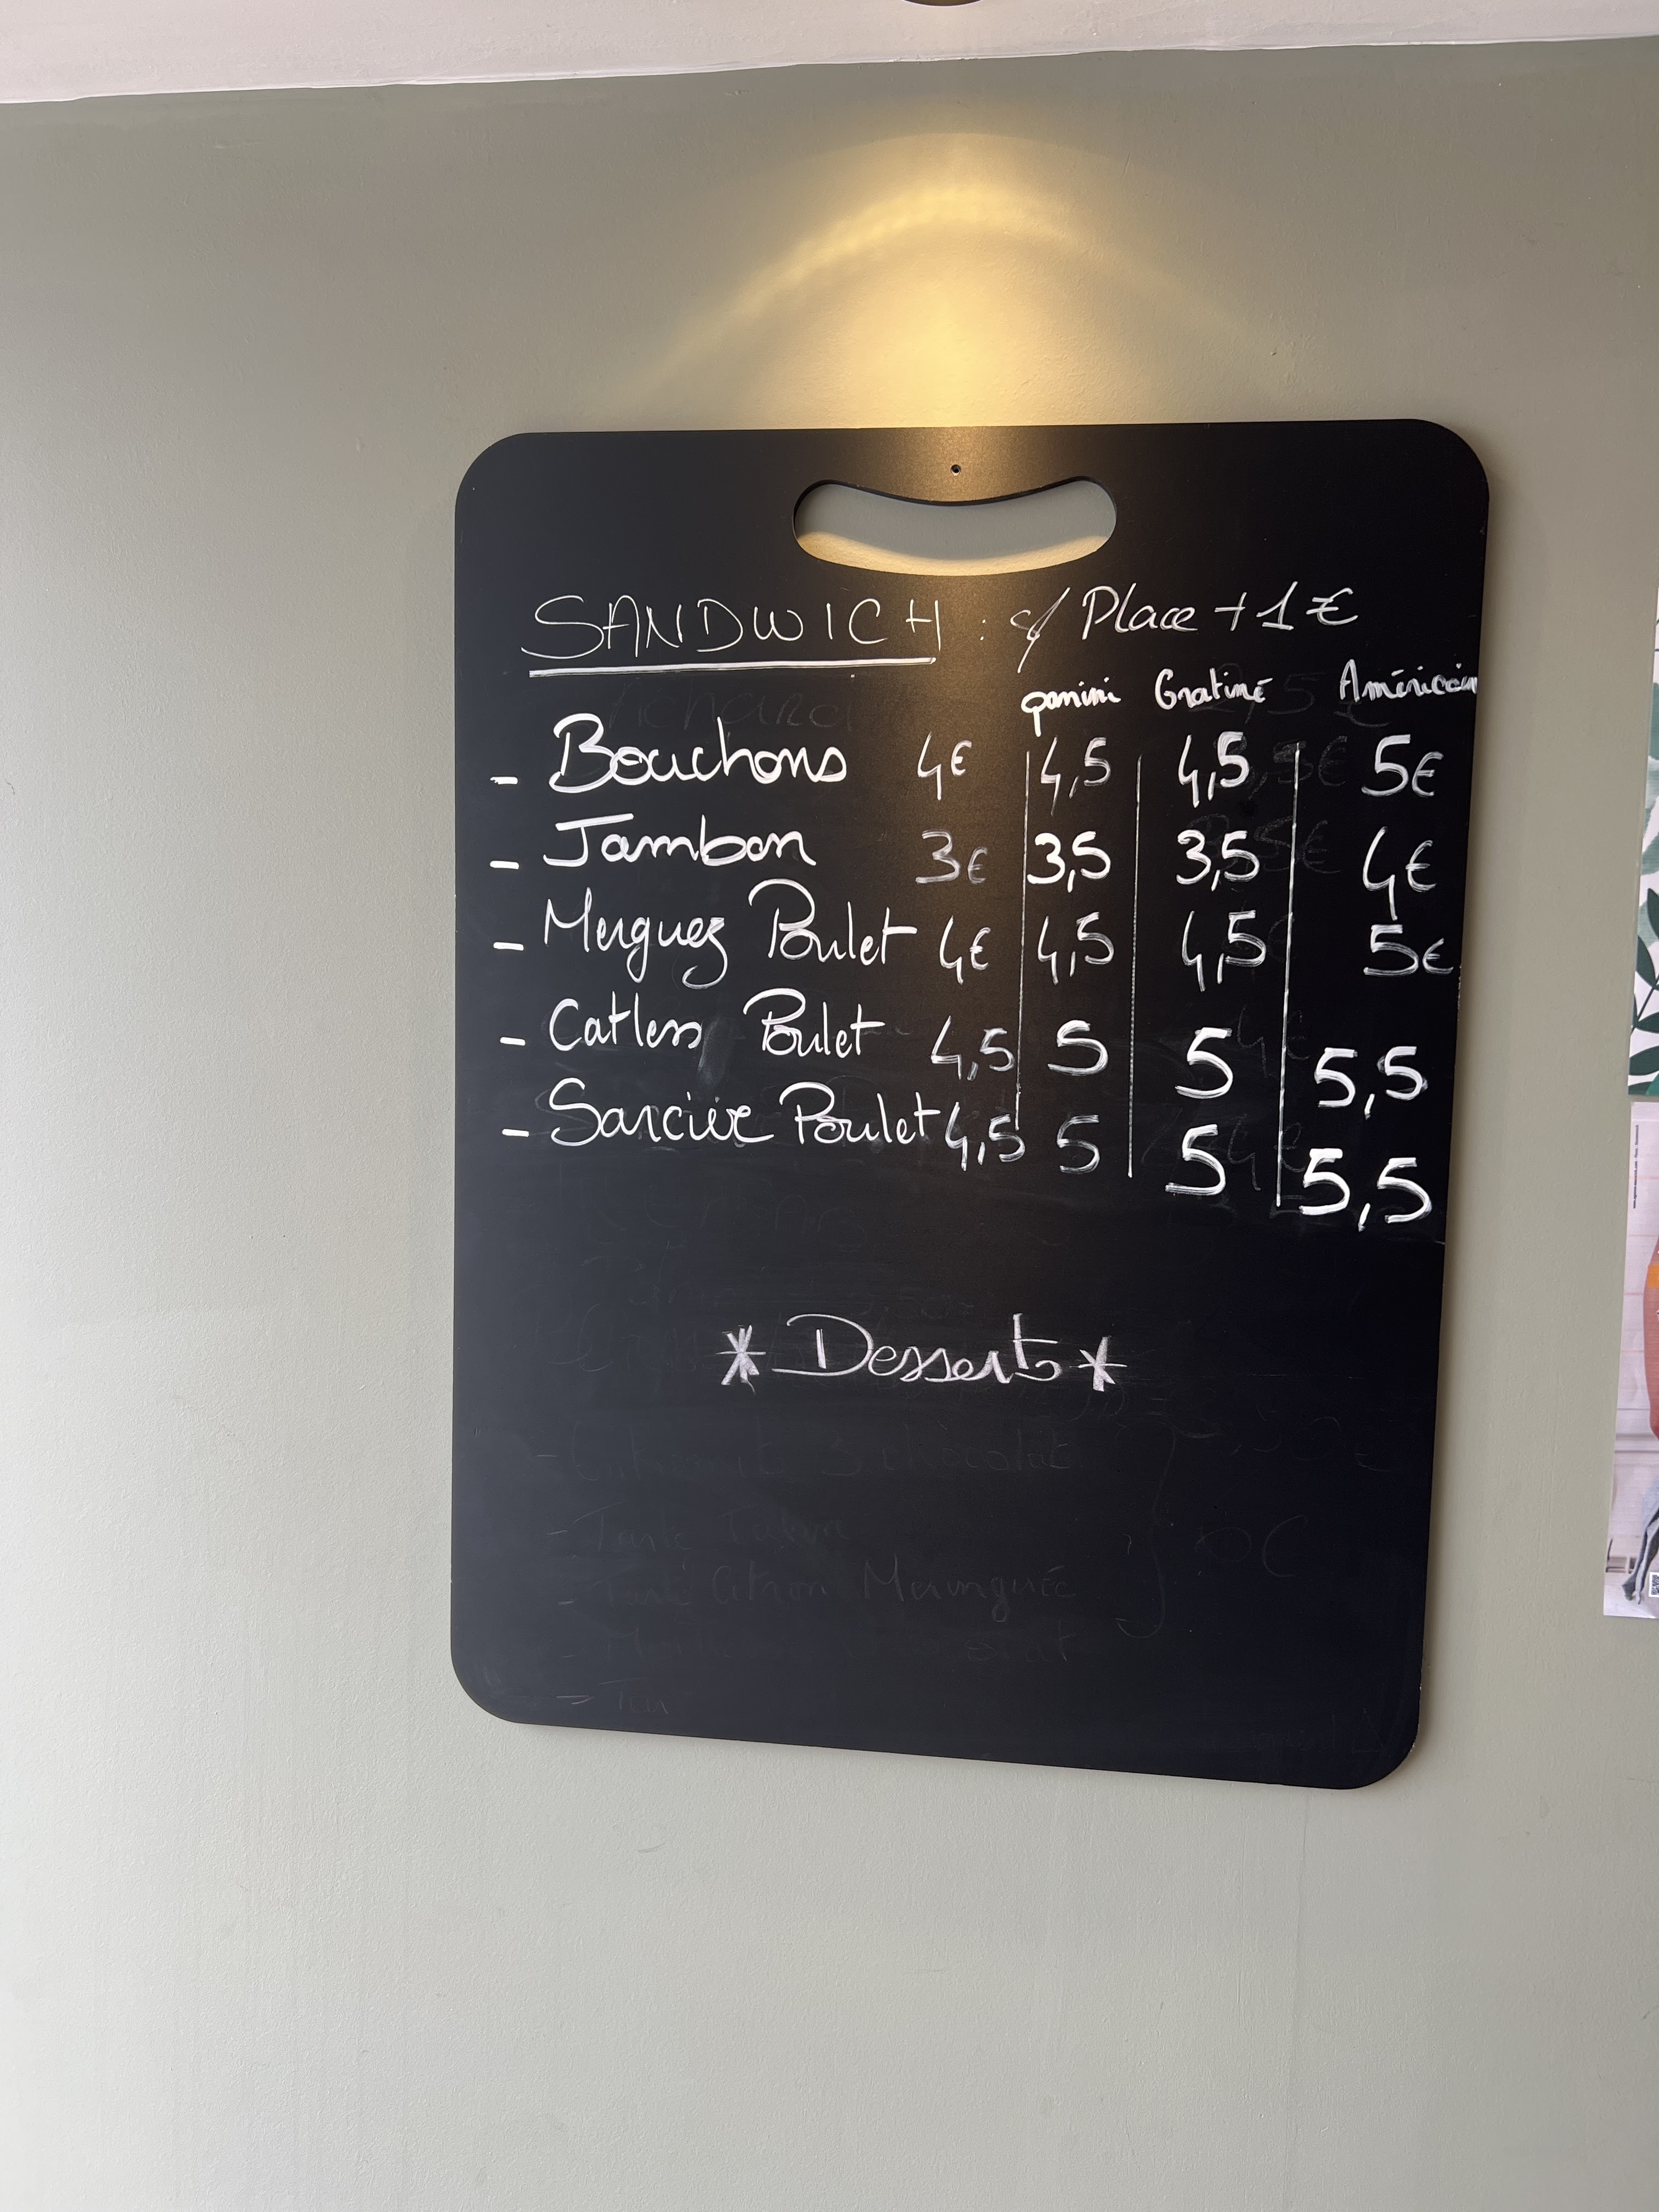 SANDWICH : s/ Place + 1 €
panini Gratiné Américain
- Bouchons 4€ 4,5 4,5 5€
- Jambon 3€ 3,5 3,5 4€
- Merguez Poulet 4€ 4,5 4,5 5€
- Catless Poulet 4,5 5 5 5,5
- Sarcive Poulet 4,5 5 5 5,5
* Desserts *
- 3 chocolat
- Tarte Tatin
- Tarte Citron Meringuée